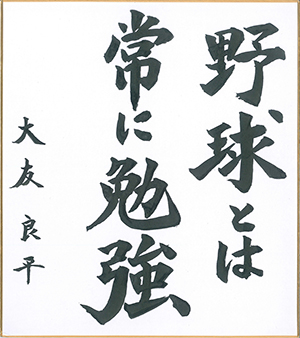 野球とは
常に勉強
大友良平